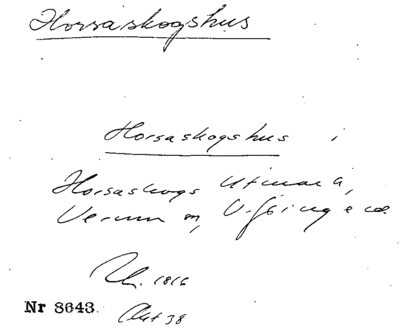 Horsaskogshus
Horsaskogshus i
Horsaskogs Utmark,
Verum sn, V. Göinge hd.
Rk. 1816
Nr 8643. Akt 38